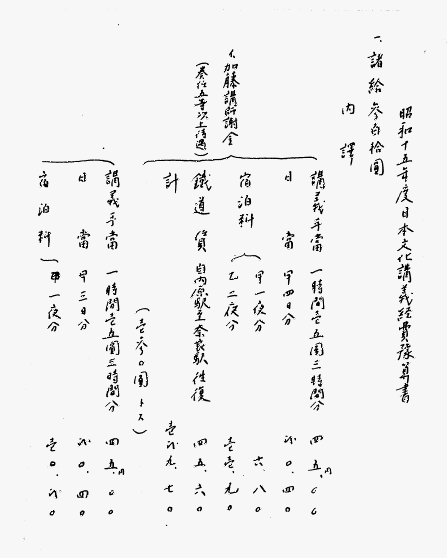 昭和十五年度日本文化講義経費豫算書
一、諸給 参百拾圓
内譯
イ、加藤講師謝金
(奏任五等以上待遇)
講義手當 一時間壱五圓三時間分 四五円.〇〇
日當 甲四日分 弐〇.四〇
宿泊料 甲一夜分 六.八〇
乙二夜分 壱壱.九〇
鐵道賃 自内原駅至奈良駅往復 四五.六〇
計 壱弐九.七〇
(壱参〇圓トス)
講義手當 一時間壱五圓三時間分 四五円.〇〇
日當 甲三日分 弐〇.四〇
宿泊料 甲一夜分 壱〇.弐〇